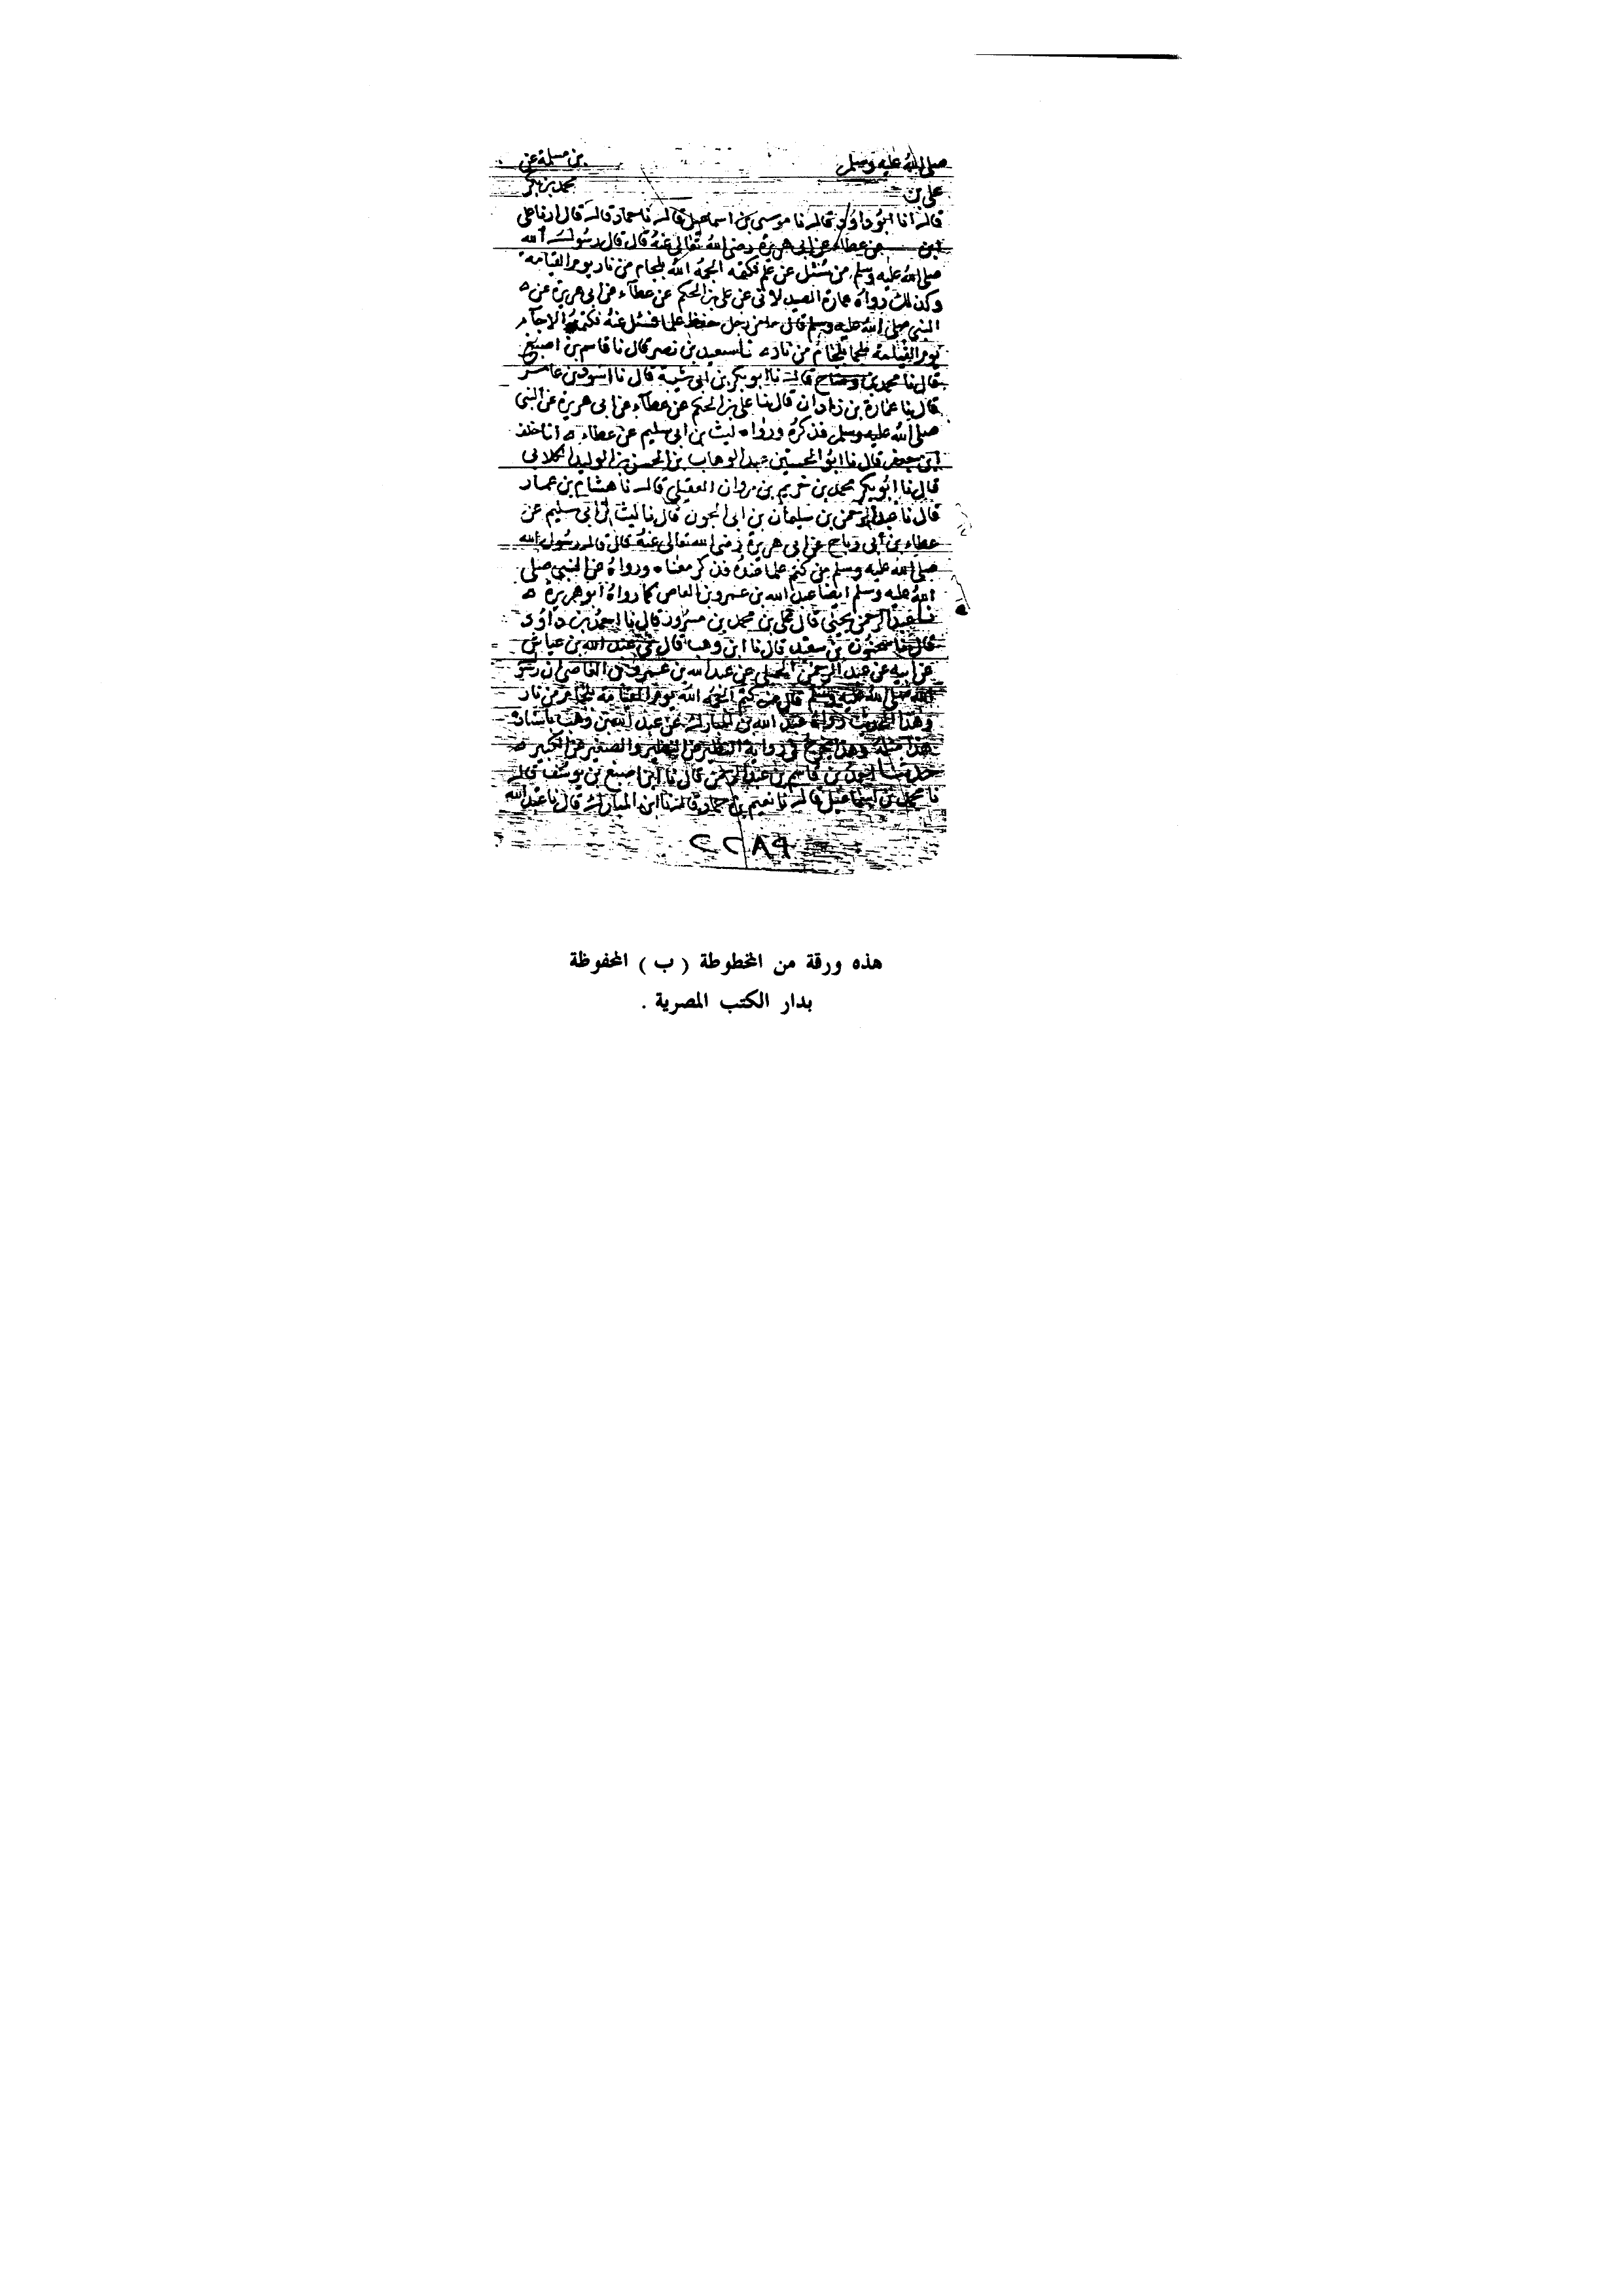 صلى الله عليه وسلم بن مسلمة عن
على بن محمد بن بكر
قال انا ابو داود قال نا موسى بن اسماعيل قال نا حماد قال قال ارنا على
ابن عن عطاء عن ابى هريرة رضى الله تعالى عنه قال قال رسول الله
صلى الله عليه وسلم من سئل عن علم فكتمه الجمه الله بلجام من نار يوم القيامة
وكذلك رواه عمارة الصيدلانى عن على بن الحكم عن عطاء عن ابى هريرة عن
النبى صلى الله عليه وسلم قال ما من رجل حفظ علما فسئل عنه فكتمه الا جاء
يوم القيامة ملجما بلجام من نار نا سعيد بن نصر قال نا قاسم بن اصبغ
قال نا محمد بن وضاح قال نا ابو بكر بن ابى شيبة قال نا اسود بن عامر
قال نا عمارة بن زادان قال نا على بن الحكم عن عطاء عن ابى هريرة عن النبى
صلى الله عليه وسلم فذكره ورواه ليث بن ابى سليم عن عطاء انا خلف
ابن جعفر قال نا ابو الحسين عبد الوهاب بن الحسن بن الوليد الكلابى
قال نا ابو بكر محمد بن خريم بن مروان العقيلى قال نا هشام بن عمار
قال نا عبد الرحمن بن سليمان بن ابى الجون قال نا ليث بن ابى سليم عن
عطاء بن أبى رباح عن ابى هريرة رضى الله تعالى عنه قال قال رسول الله
صلى الله عليه وسلم من كتم علما عنده فذكر معناه ورواه عن النبى صلى
الله عليه وسلم ايضا عبد الله بن عمرو بن العاص كما رواه ابو هريرة
نا عبد الرحمن بن يحيى قال على بن محمد بن مسرور قال نا احمد بن داود
قال نا سحنون بن سعيد قال نا ابن وهب قال عبد الله بن عياش
عن ابيه عن عبد الرحمن الحبلى عن عبد الله بن عمرو بن العاصى ان رسول
الله صلى الله عليه وسلم قال من كتم الجمه الله يوم القيامة بلجام من نار
وهذا الحديث رواه عبد الله بن المبارك عن عبد الله بن وهب باسناده
هذا مثله وهذا فى رواية النظير عن النظير والصغير عن الكبير
حدثنا احمد بن قاسم بن عبد الرحمن قال نا ابن اصبغ بن يوسف قال
نا محمد بن اسماعيل قال نا نعيم بن حماد قال نا ابن المبارك قال نا عبد الله
٢٢٨٩
هذه ورقة من المخطوطة ( ب ) المحفوظة
بدار الكتب المصرية .